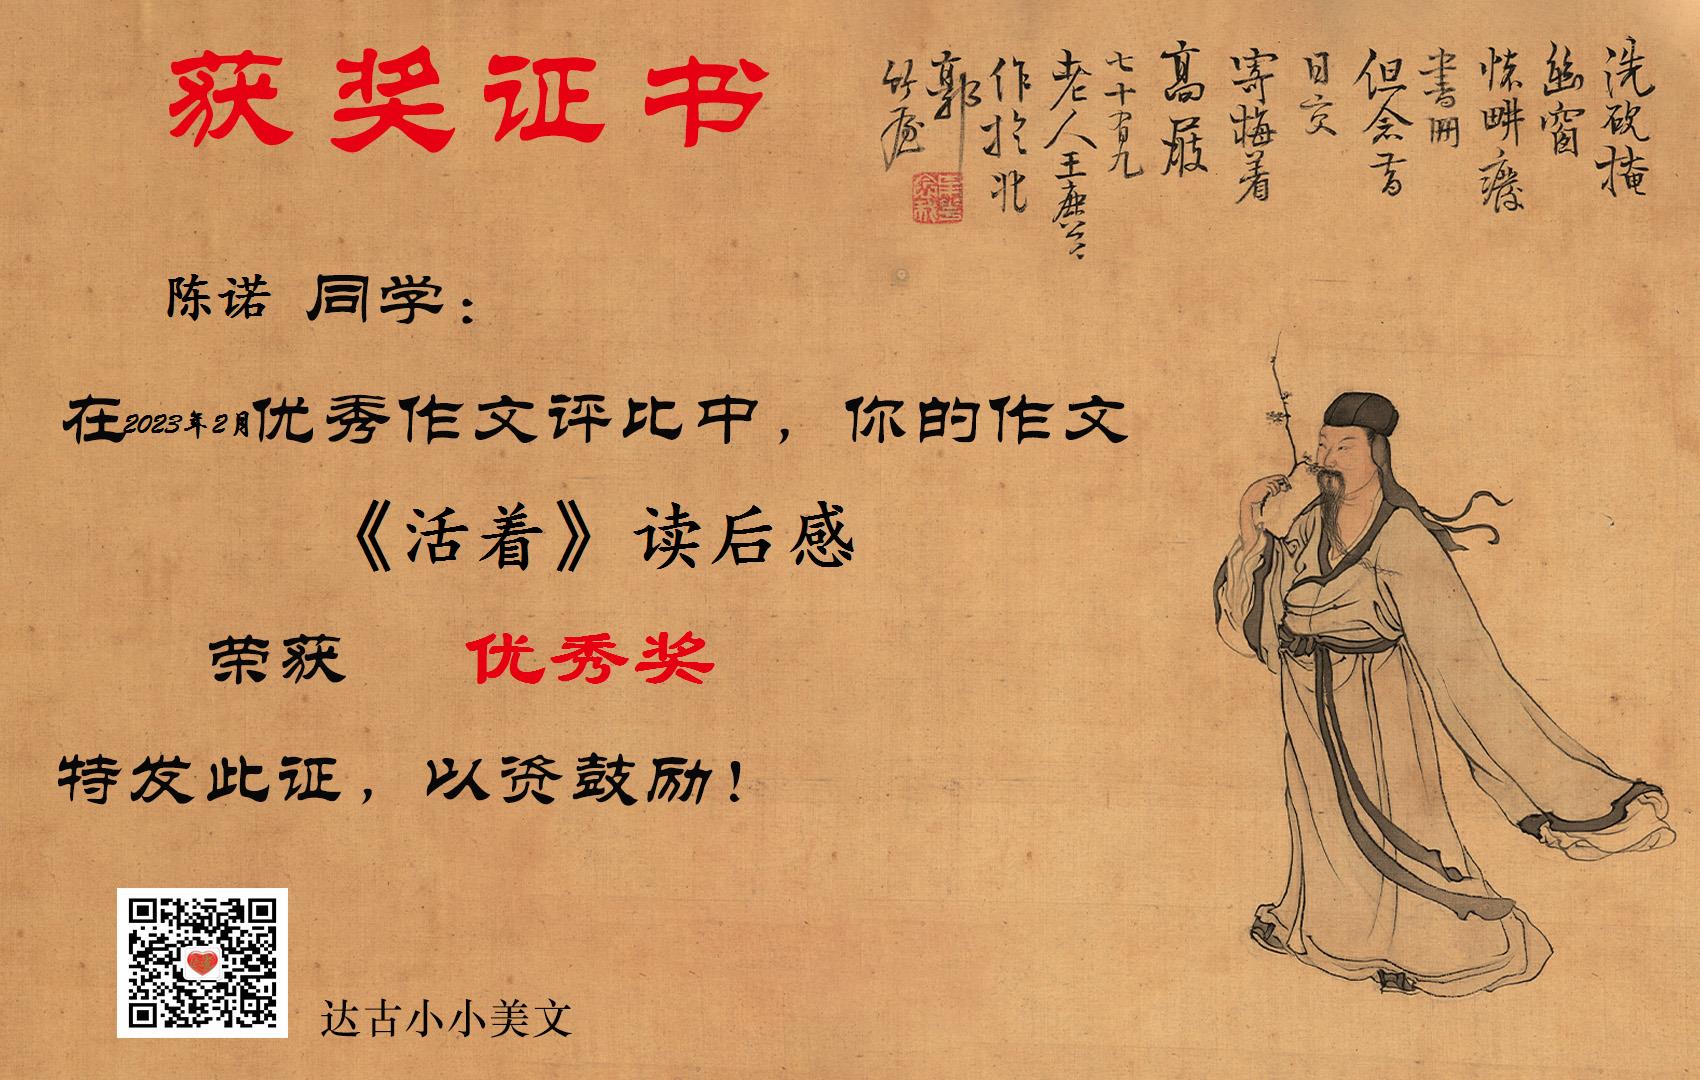 获奖证书
洗砚掩
幽窗
怀畊癈
书册
但念昔
日交
寄梅着
高屐
七十有九
老人王
作於北
郭
竹
陈诺 同学：
在2023年2月优秀作文评比中，你的作文
《活着》读后感
荣获 优秀奖
特发此证，以资鼓励！
达古小小美文